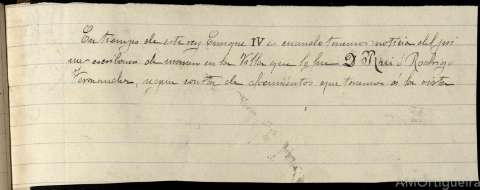 En tiempo de este rey Enrique IV es cuando tenemos noticia del pri
mer escribano de numero en la Villa que lo fue D Rui o Rodrigo
Fernandez, segun consta de documentos que tenemos á la vista
AMOrtigueira